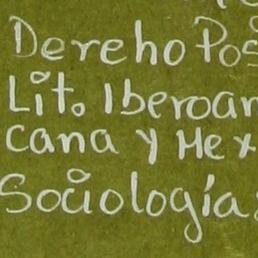 Derecho Pos
Lit. Iberoam
cana y Mex
Sociología